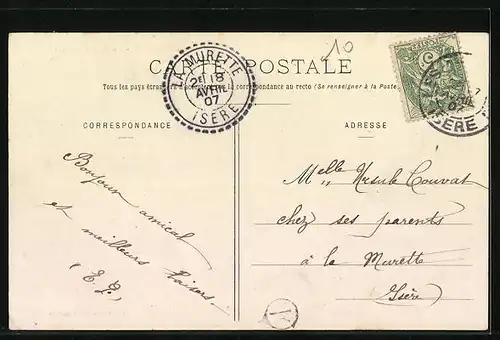 10
CARTE POSTALE
LA MURETTE
2E 18
AVRIL
07
ISÈRE
Tous les pays au recto (Se renseigner à la Poste)
ISERE
CORRESPONDANCE
ADRESSE
Bonjour amical
et meilleurs baisers.
(E. G.)
Melle Ursule Couvat
chez ses parents
à la Murette
Isère